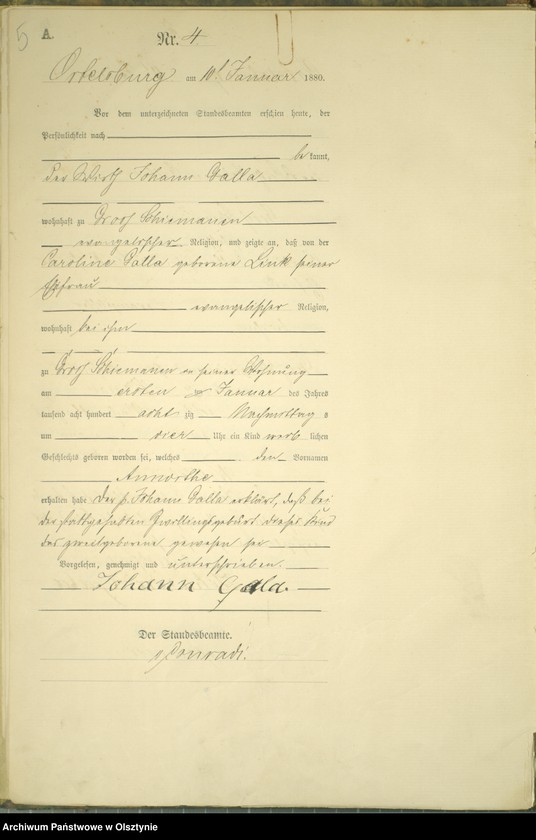 5
A.
Nr. 4
Ortelsburg am 10t Januar 1880.
Vor dem unterzeichneten Standesbeamten erschien heute, der
Persönlichkeit nach
bekannt,
der Wirth Johann Galla
wohnhaft zu Groß Schiemanen
evangelischer Religion, und zeigte an, daß von der
Caroline Galla geborene Link seiner
Ehefrau
evangelischer Religion,
wohnhaft bei ihm
zu Groß Schiemanen in seiner Wohnung
am ersten Januar des Jahres
tausend acht hundert acht zig Nachmittag s
um vier Uhr ein Kind weib lichen
Geschlechts geboren worden sei, welches den Vornamen
Annorthe
erhalten habe. Der p. Johann Galla erklärt, daß bei
der stattgehabten Zwillingsgeburt dieses Kind
das zweitgeborene gewesen sei
Vorgelesen, genehmigt und unterschrieben.
Johann Galda.
Der Standesbeamte.
Conradi.
Archiwum Państwowe w Olsztynie